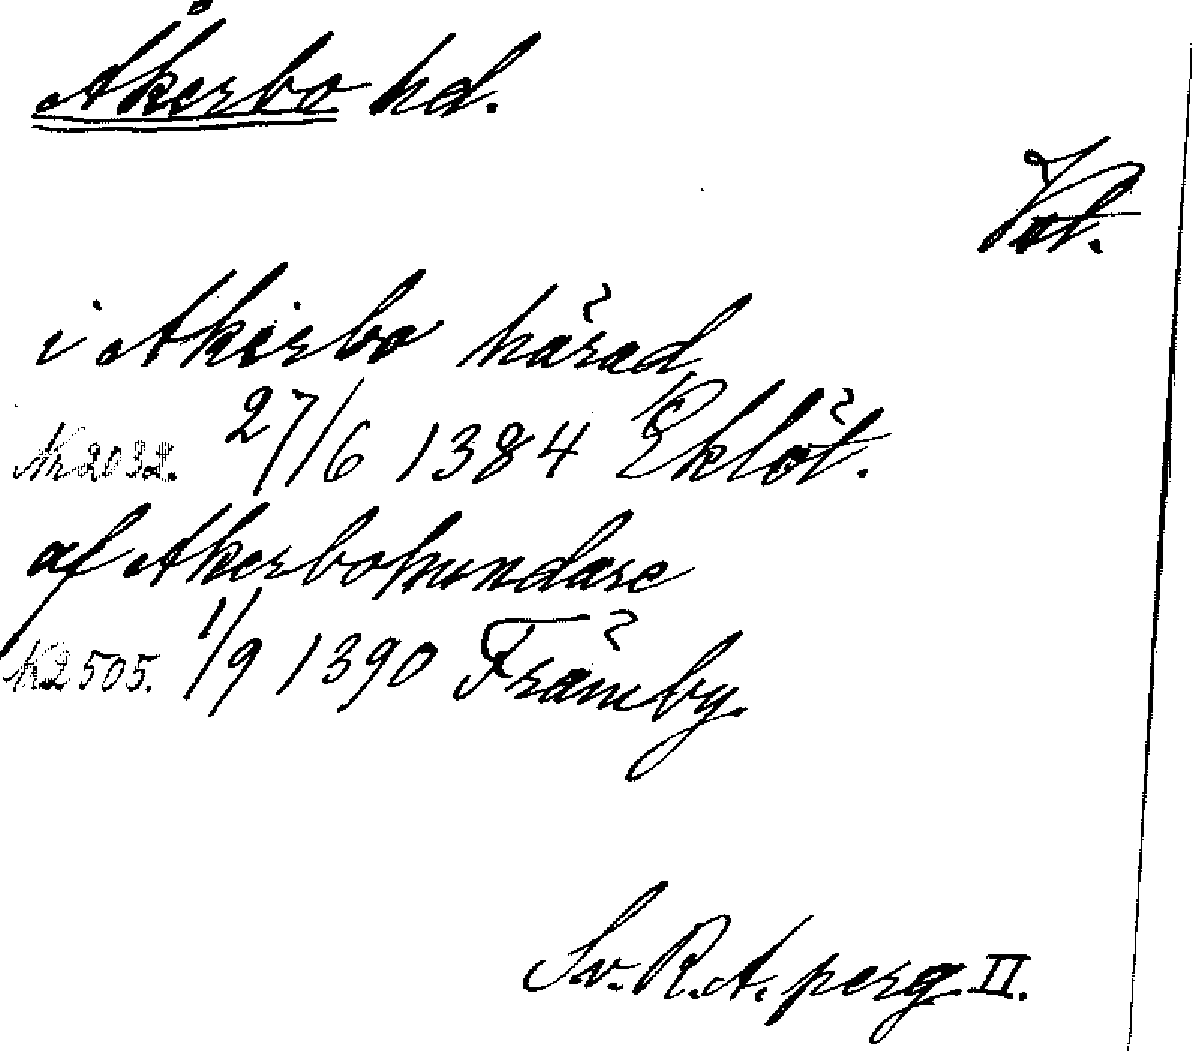 Åkerbo hd.
Vst.
i Akerbo härad
Nr 2032. 27/6 1384 Eklöt.
af Akerbohundare
N 2505. 1/9 1390 Främby.
Sv. R. A. perg. II.